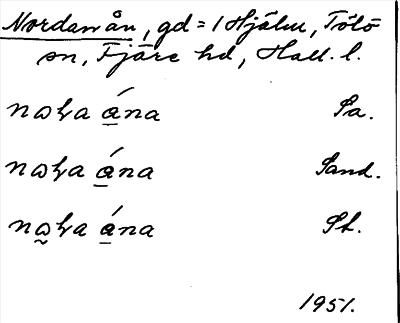 Nordanån, gd = 1 Hjälm, Tölö
sn, Fjäre hd, Hall. l.
nωꝜa á̲na Sa.
nωꝜa á̲na Sand.
nω̰Ꝝa á̲na St.
1951.